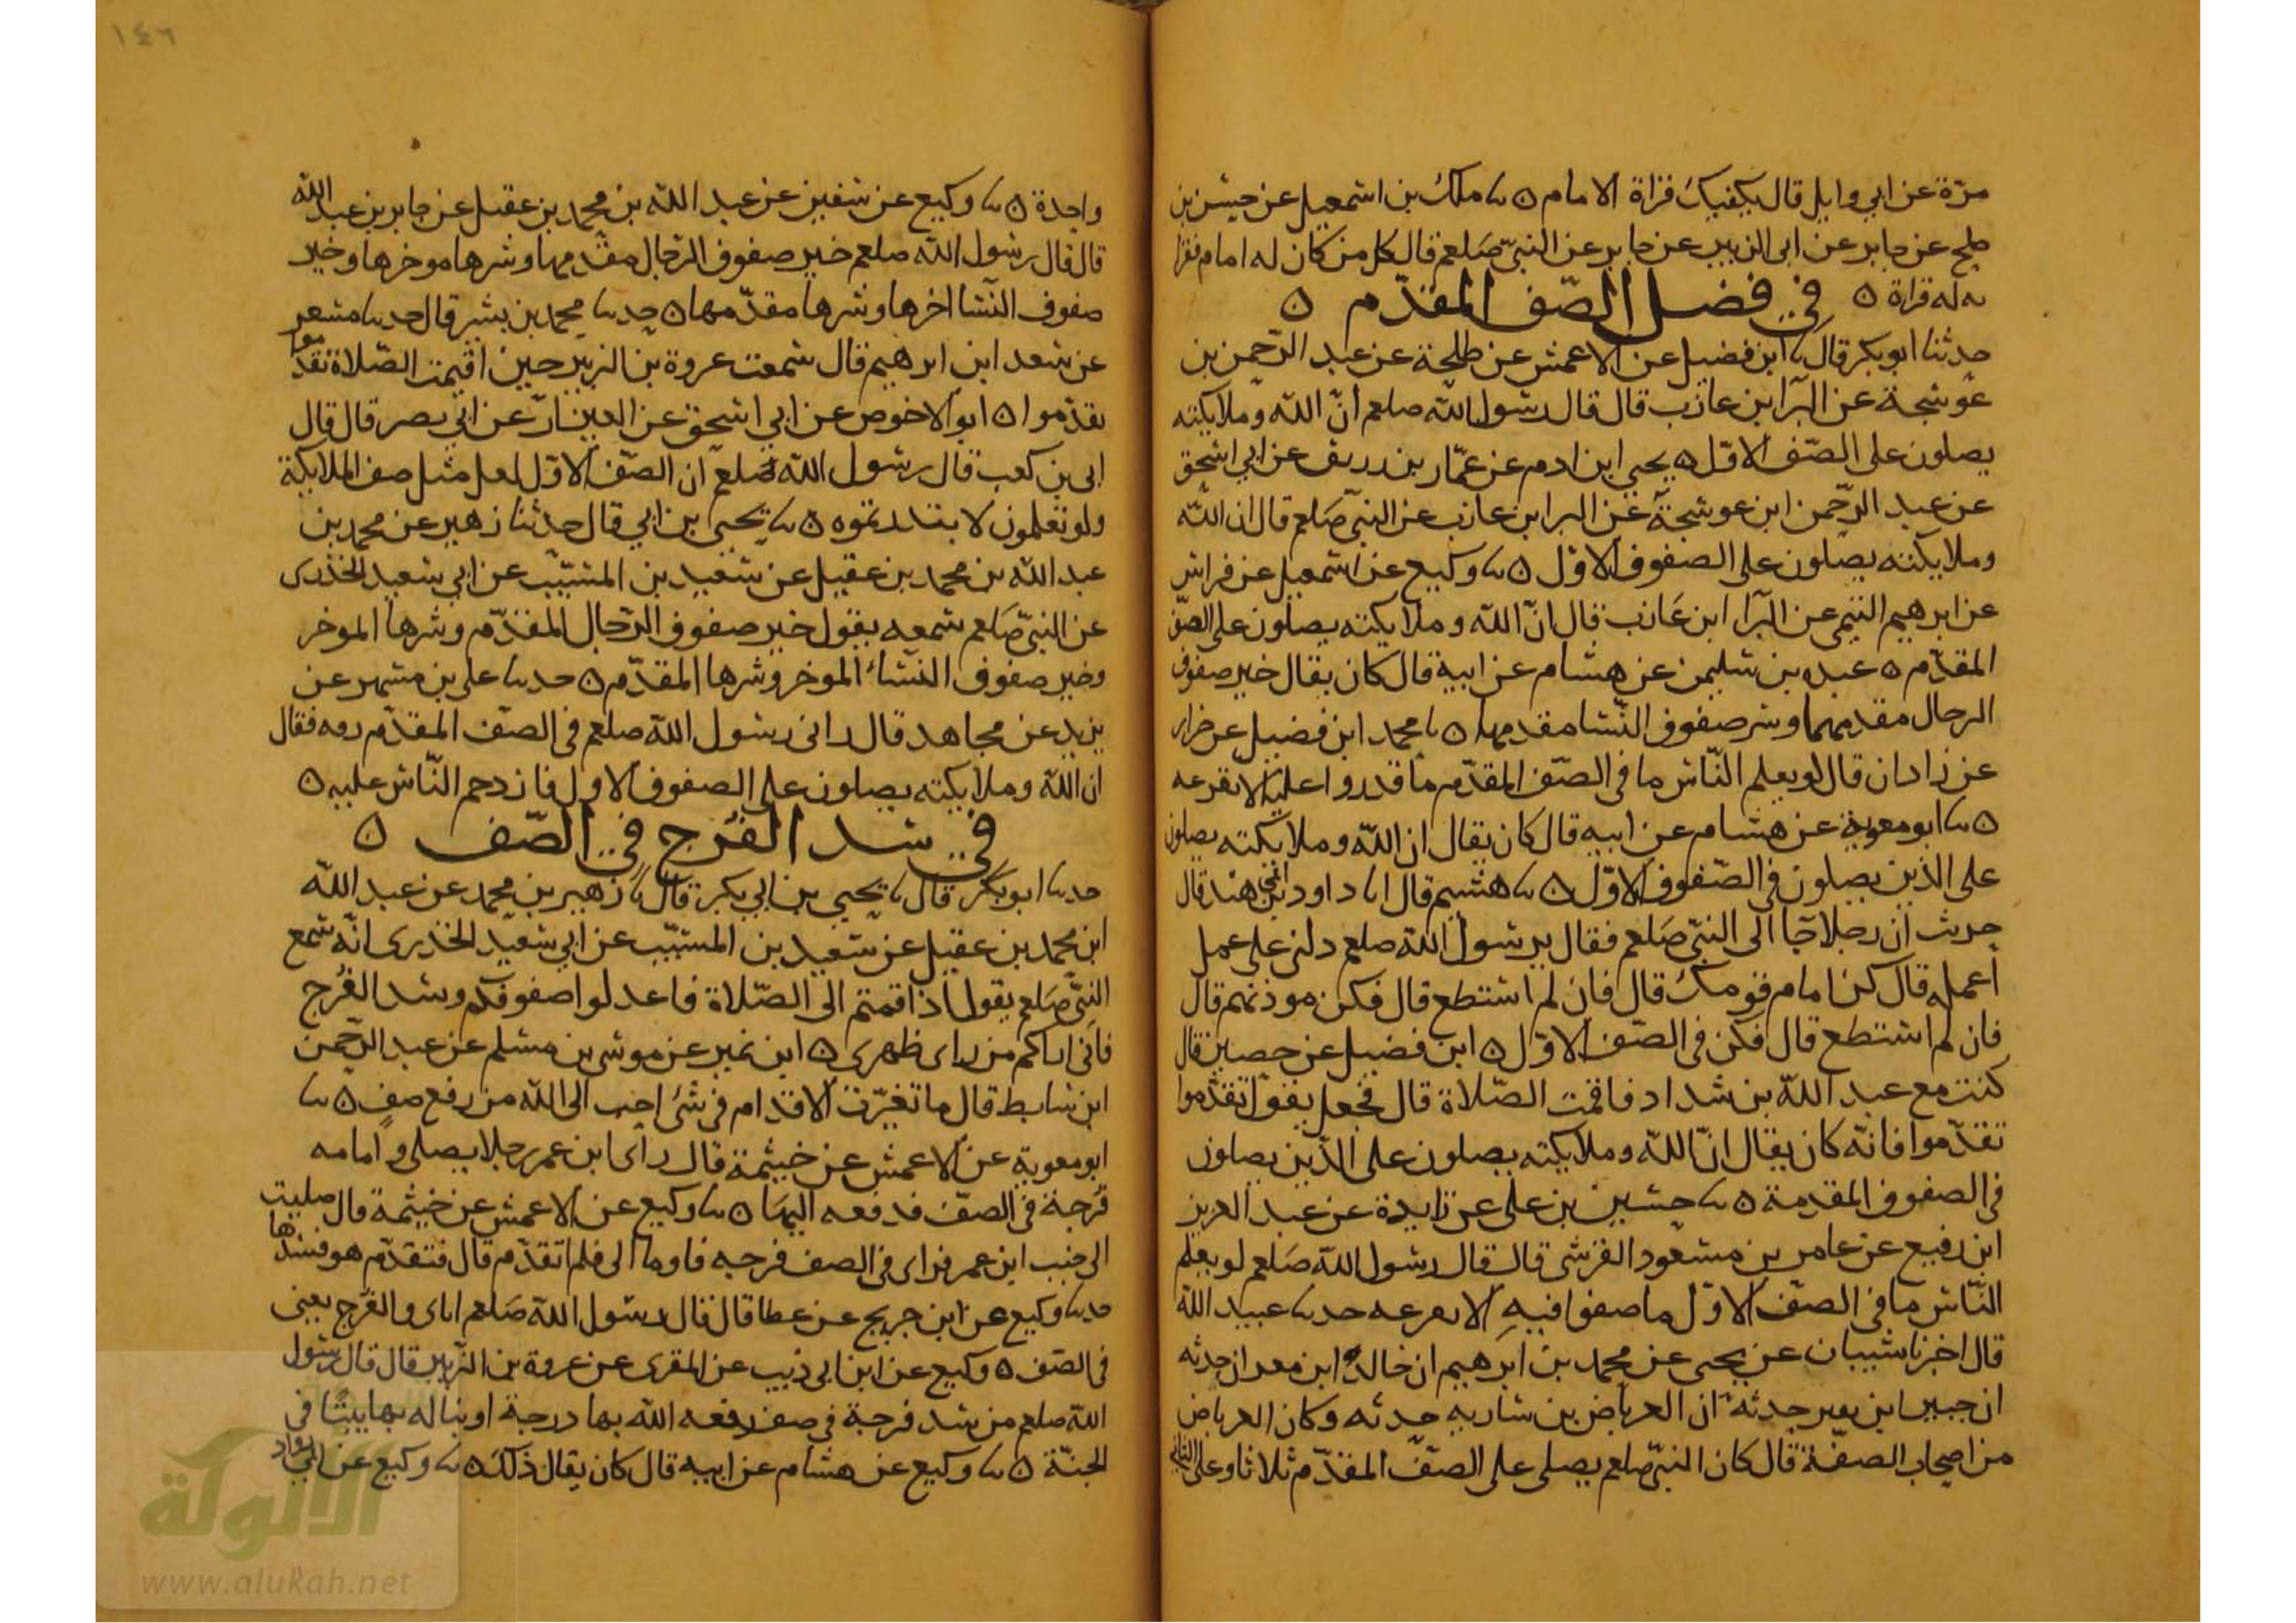 ١٤٦
مرّة عن ابي وايل قال يكفيك قراة الامام ٥ نا ملك بن اسمعيل عن حسن بن
صلح عن جابر عن ابى الزبير عن جابر عن النبيّ صَلعم قال كل من كان له امام فقرا
ته له قراة ٥ في فضل الصّف المقدّم ٥
حدثنا ابو بكر قال نا ابن فضيل عن الاعمش عن طلحة عن عبد الرّحمن بن
عوسجة عن البرآ ابن عازب قال قال رسول الله صلعم انّ الله وملايكته
يصلون على الصّف الاوّل ٥ يحيى ابن ادم عن عمّار بن رريق عن ابي اسحق
عن عبد الرّحمن ابن عوسجة عن البرا ابن عازب عن النبيّ صَلعم قال ان الله
وملايكته يصلون على الصفوف الاوّل ٥ نا وكيع عن اسمعيل عن فراس
عن ابرهيم التيمى عن البرآ ابن عَازب قال انّ الله وملايكته يصلون على الصّف
المقدّم ٥ عبده بن سليمن عن هشام عن ابية قال كان يقال خير صفوف
الرجال مقدمهما وشر صفوف النّسا مقدمها ٥ نا محمد ابن فضيل عن ضرار
عن زادان قال لو يعلم النّاس ما في الصّف المقدّم ما قدروا عليه الا بقرعه
٥ نا ابو معوية عن هشام عن ابيه قال كان يقال ان الله وملايكته يصلون
على الذين يصلون في الصّفوف الاوّل ٥ نا هشيم قال انا داود بن ابي هند قال
حدثت ان رجلا جَا الى النبيّ صَلعم فقال يرسول الله صلعم دلني على عمل
اعمله قال كن امام قومك قال فان لم استطع قال فكن موذنهم قال
فان لم استطع قال فكن في الصّف الاوّل ٥ ابن فضيل عن حصين قال
كنت مع عبد الله بن شداد فاقمت الصّلاة قال فجعل يقول تقدّموا
تقدّموا فانّه كان يقال انّ الله وملايكته يصلون على الذّين يصلون
في الصفوف المقدمة ٥ نا حسين بن على عن زايدة عن عبد العزيز
ابن رفيع عن عامر بن مسعود القرشى قال قال رسول الله صَلعم لو يعلم
النّاس ما في الصّف الاوّل ما صفوا فيهِ الا بقرعه حدثنا عبيد الله
قال اخبرنا شيبان عن يحيى عن محمد بن ابرهيم ان خالد ابن معدان حدثه
ان جبير ابن نفير حدثه ان العرباض بن سَاريه حدثه وكان العرباض
من اصحاب الصفّة قال كان النبيّ صلعم يصلى على الصّفّ المقدّم ثلاثا وعلى الثاني
واحدة ٥ نا وكيع عن سفين عن عبد الله بن محمد بن عقيل عن جابر بن عبد الله
قال قال رسول الله صلعم خير صفوف الرّجال مقدّمها وشرها موخرها وخير
صفوف النّسَا اخرها وشرها مقدّمها ٥ حدثنا محمد بن بشر قال حدثنا مسعر
عن سعد ابن ابرهيم قال سمعت عروة بن الزبير حين اقيمت الصّلاة تقدّموا
تقدّموا ٥ ابو الاحوص عن ابي اسحق عن العيزار عن ابي بصر قال قال
ابى بن كعب قال رسول الله صَلعم ان الصّف الاوّل لعلى مثل صف الملايكة
ولو تعلمون لابتدرتموه ٥ نا يحيى بن ابي قال حدثنا زهير عن محمد بن
عبد الله بن محمد بن عقيل عن سَعيد بن المسَيّب عن ابي سَعيد الخدرى
عن النبيّ صَلعم سمعه يقول خير صفوف الرّجال المقدّم وشرها الموخر
وخير صفوف النّسَا الموخر وشرها المقدّم ٥ حدثنا على بن مسهر عن
يزيد عن مجاهد قال رانى رسول الله صلعم في الصّف المقدّم رمه فقال
ان الله وملايكته يصلون على الصفوف الاول فازدحم النّاس عليه ٥
في سد الفرج في الصّف ٥
حدثنا ابو بكر قال نا يحيى بن ابي بكر قال نا زهير بن محمد عن عبد الله
ابن محمد بن عقيل عن سَعيد بن المسَيّب عن ابي سَعيد الخدرى انّه سمع
النبيّ صَلعم يقول اذا قمتم الى الصّلاة فاعدلوا صفوفكم وسد الفُرج
فانى اراكم من راى ظهرى ٥ ابن نمير عن موسى بن مسلم عن عبد الرّحمن
ابن سَابط قال ما تغبّرت الاقدام في شئ احب الى الله من رفع صفٍ ٥ نا
ابو معوية عن الاعمش عن خيثمة قال راى ابن عمر رجلا يصلى وامامه
فُرجة في الصّف فدفعه اليهَا ٥ نا وكيع عن الاعمش عن خيثمة قال صليت
الى جنب ابن عمر فراى في الصف فرجه فاوما الى فلم اتقدّم قال فتقدّم هو فسدّها
حدثنا وكيع عن ابن جريج عن عطا قال قال رسول الله صَلعم اياى والفرج يعنى
في الصّف ٥ وكيع عن ابن ابى ذيب عن المقرى عن عروة بن الزّبير قال قال رسول
الله صلعم من سد فرجة في صف رفعه الله بها درجة او بنا له بها بيتًا في
الجنّة ٥ نا وكيع عن هشام عن ابيه قال كان يقال ذلك ٥ نا وكيع عن ابي رواد
الألوكة
www.alukah.net